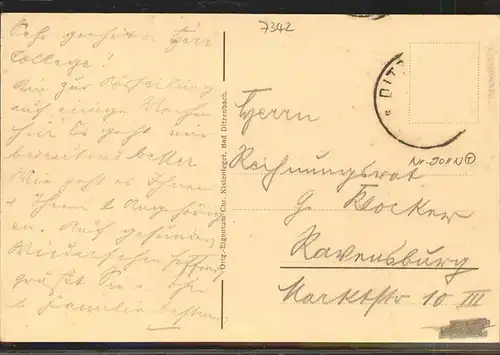 7342
Sehr geehrter Herr
College!
Bin zur Erholung
auf einige Wochen
hier. Es geht mir
bedeutend besser.
Wie geht es Ihnen
u. Ihren l. Angehörig
en. Auf gesundes
Wiedersehen hoffend
grüßt Sie u. Ihre
l. Familie bestens
Orig.-Eigentum Chr. Kistenfeger, Bad Ditzenbach.
DIT
Herrn
Rechnungsrat
G. Klocker
Ravensburg
Marktstr 10 III